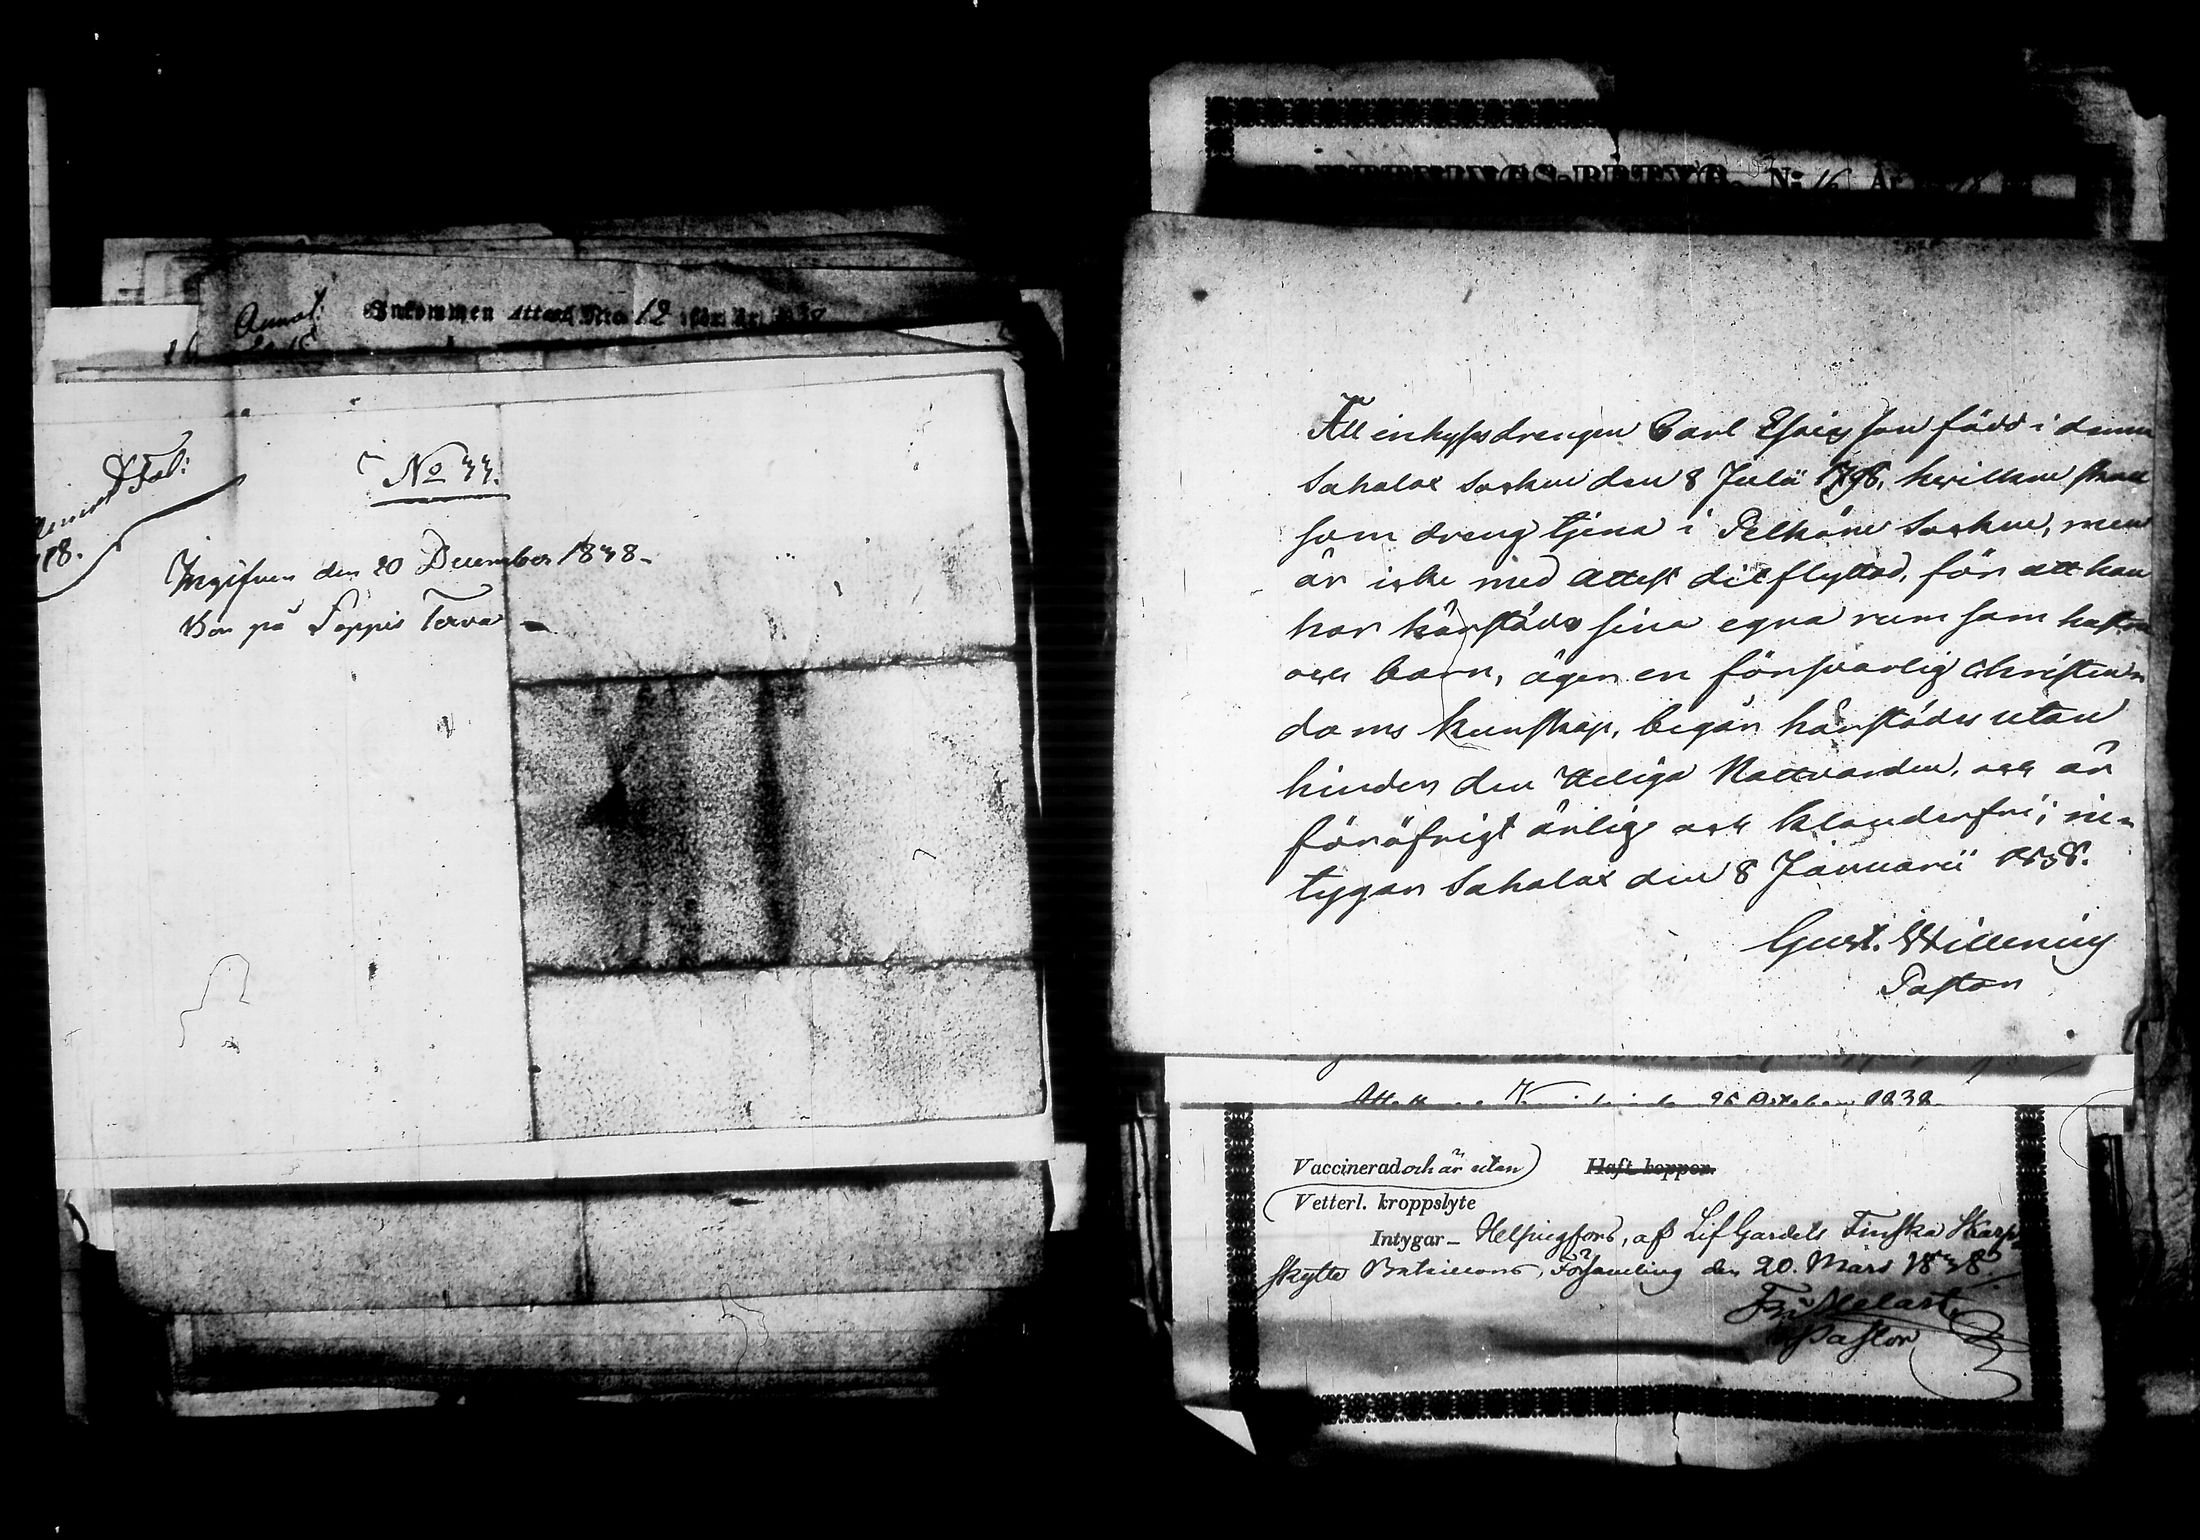 Annot: Inkommen Attest N:o 12 för år 1838
& Fol:
18.
No 33.
Ingifven den 20 December 1838-
Bor på Poppis Terva
N: 16 År 1838
Att inhysesdrengen Carl Esaiasson född i denna
Sahalax Socken den 8 Julii 1798, hvilken skall
som dreng tjena i Pelkäne Socken, men
är icke med attest ditflyttad, för att han
har härstädes sina egna rum samt hustru
och barn, äger en försvarlig Christen-
doms kunskap, begår härstädes utan
hinder den Heliga Nattvarden, och är
föröfrigt ärlig och klanderfri; in-
tygar Sahalax den 8 Januarii 1838.
Gust.
Pastor
25 October 1838
Vaccinerad och är utan Haft koppor.
Vetterl. kroppslyte
Intygar - Helsingfors, af Lif Gardets Finska Skarp-
Skytte Bataillons Församling den 20. Mars 1838
Pastor